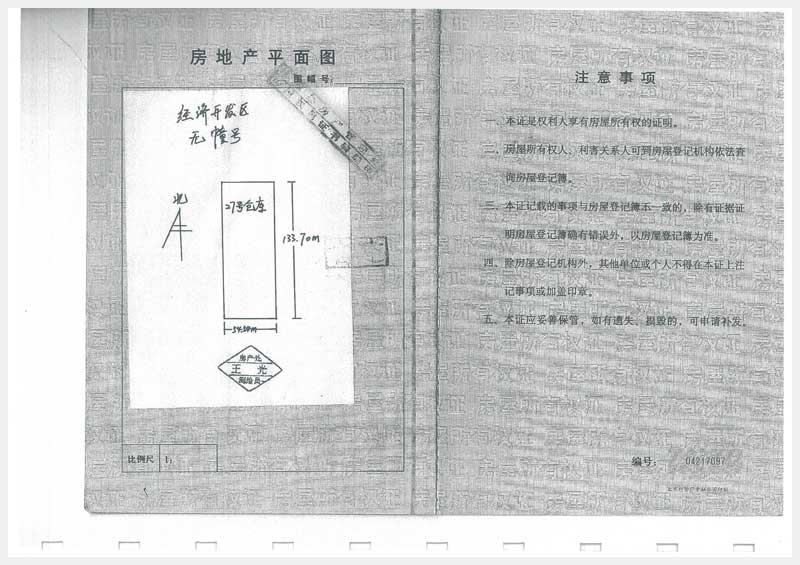 房地产平面图
图幅号:
经济开发区
无幢号
北
27号仓库
133.70m
房产处
王 光
测绘员
比例尺 1:
注意事项
一、本证是权利人享有房屋所有权的证明。
二、房屋所有权人、利害关系人可到房屋登记机构依法查
询房屋登记簿。
三、本证记载的事项与房屋登记簿不一致的，除有证据证
明房屋登记簿确有错误外，以房屋登记簿为准。
四、除房屋登记机构外，其他单位或个人不得在本证上注
记事项或加盖印章。
五、本证应妥善保管，如有遗失、损毁的，可申请补发。
编号: 04217097